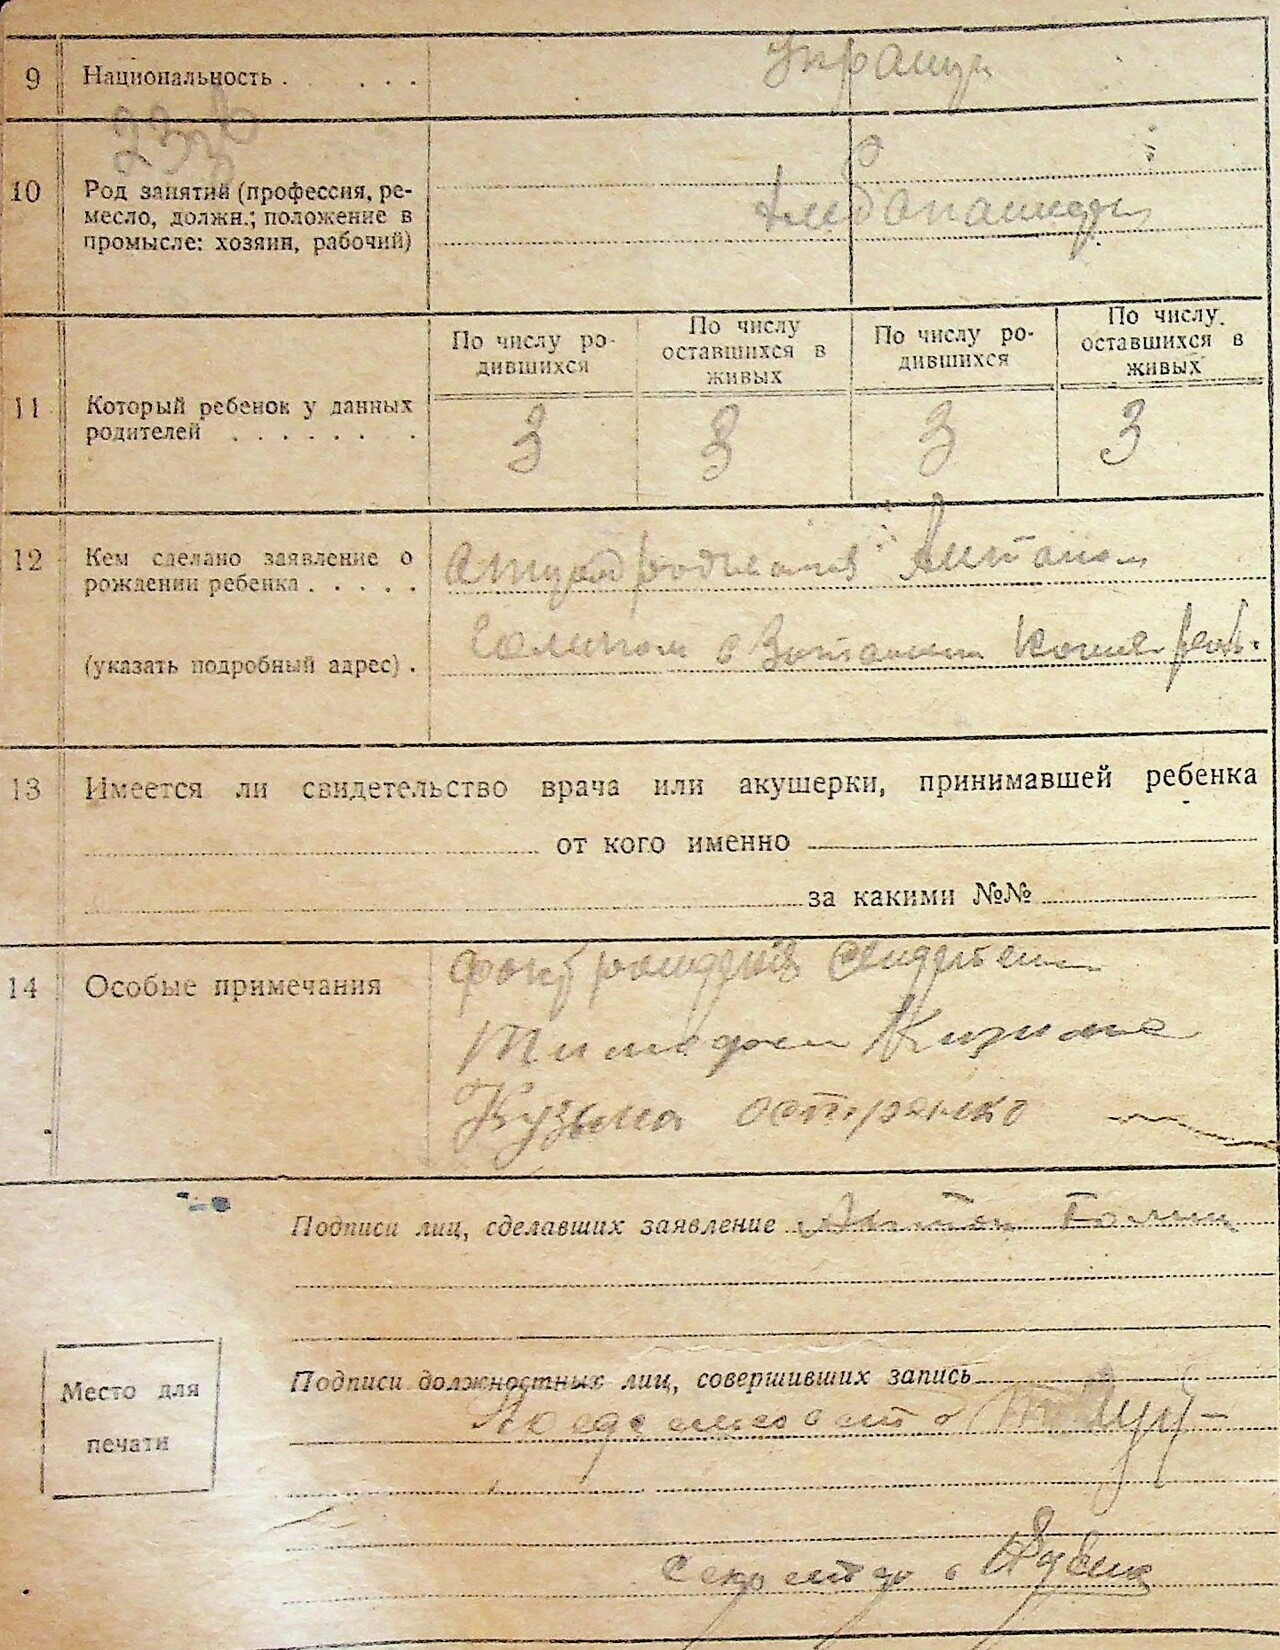 9 Национальность . . . . . украинцы
10 Род занятий (профессия, ре-
месло, должн.; положение в
промысле: хозяин, рабочий)
хлебопашцы
По числу ро-
дившихся
По числу
оставшихся в
живых
По числу ро-
дившихся
По числу
оставшихся в
живых
11 Который ребенок у данных
родителей . . . . . . . .
3 3 3 3
12 Кем сделано заявление о
рождении ребенка . . . . .
Антоном
(указать подробный адрес) .
Галичом с
13 Имеется ли свидетельство врача или акушерки, принимавшей ребенка
от кого именно
за какими №№
14 Особые примечания
факт рождения
Тимофей
Кузьма остренко
Подписи лиц, сделавших заявление Антон Галич
Подписи должностных лиц, совершивших запись
Место для
печати
секретарь